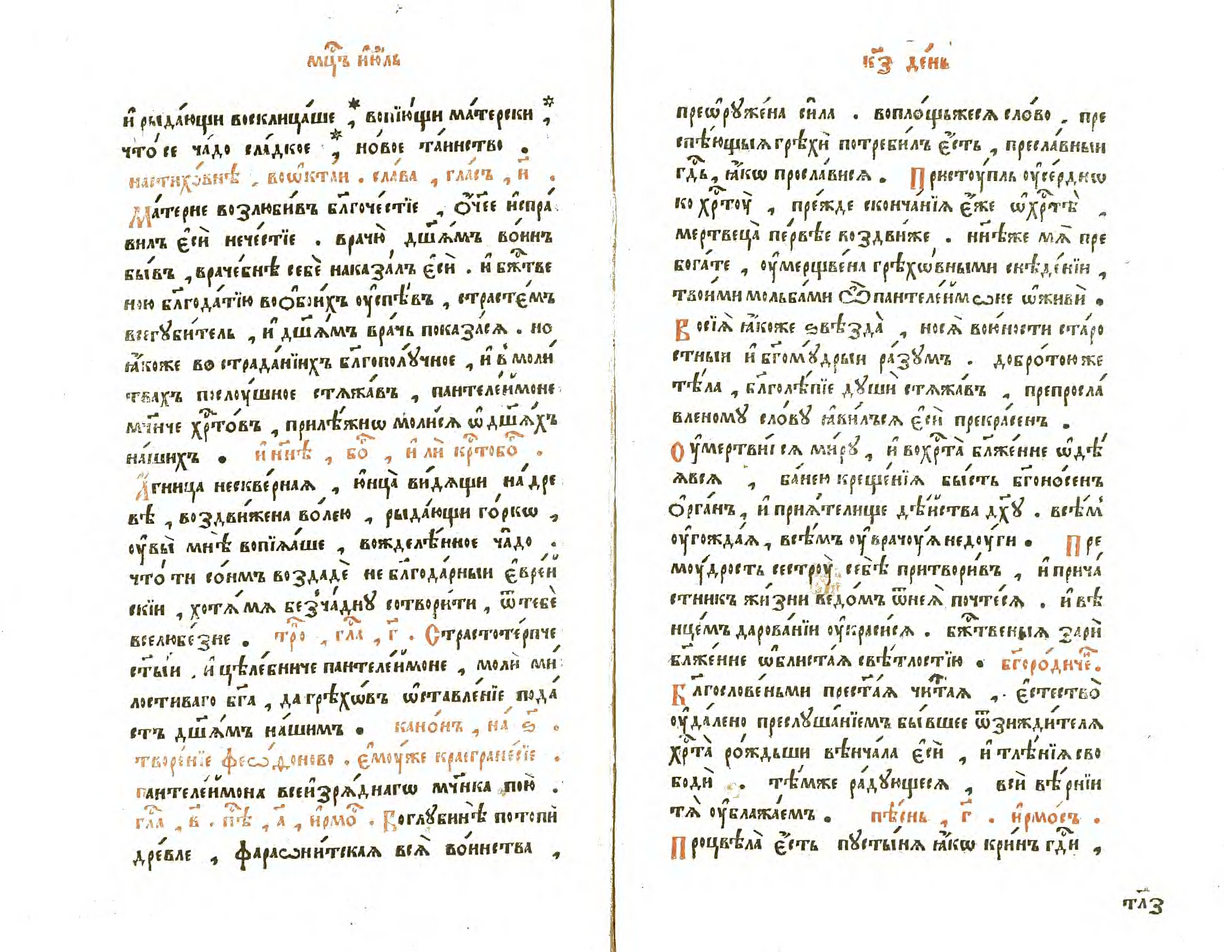 мц҃ъ и҆ю́ль
и҆ рыда́ющи восклица́ше * , вопїю́щи ма́терски * ,
что̀ се ча́до сла́дкое * , но́вое та́инство .
на стихо́внѣ , во ѡ҆ктаи . сла́ва , гла́съ , и҃ .
Ма́терне возлюби́въ бл҃гоче́стїе , ѻ҆́чее и҆спра́
вилъ є҆сѝ нече́стїе . врачю̀ дш҃а́мъ во́инъ
бы́въ , враче́бнѣ себѐ наказа́лъ є҆сѝ . и҆ бж҃тве
ною бл҃года́тїю во ѻ҆бои́хъ ѹ҆спѣ́въ , страсте́мъ
всегуби́тель , и҆ дш҃а́мъ вра́чь показа́лсѧ . но
ꙗ҆́коже во страда́нїихъ бл҃гополу́чное , и҆ в моли́
твахъ послѹ́шное стѧжа́въ , пантеле́ймоне
мч҃нче хр҃то́въ , прилѣ́жнѡ моли́сѧ ѡ҆ дш҃а́хъ
на́шихъ . и҆ нн҃ѣ , бо҃ , и҆ли̏ кр҃тобо҃ .
А҆́гница нескве́рнаѧ , ю҆́нца ви́дѧщи на дре́
вѣ , воздви́жена во́лею , рыда́ющи го́ркѡ ,
ѹ҆вы̀ мнѣ̀ вопїѧ́ше , вожделѣ́нное ча́до .
что̀ ти со́имъ воздадѐ не бл҃года́рныи є҆вре́й
скїи , хотѧ́ мѧ безча́дну сотвори́ти , ѿ тебѐ
вселюбе́зне . тро҃ , гла҃ , г҃ . Страстоте́рпче
ст҃ы́и , и҆ цѣле́бниче пантеле́ймоне , молѝ ми́
лостиваго бг҃а , да грѣхо́въ ѡ҆ставле́нїе пода́
стъ дш҃а́мъ на́шимъ . кано́нъ , на ѕ҃ .
творе́нїе феѻдо́ново . є҆мѹ́же краегране́сїе .
пантеле́ймона всеизрѧ́днагѡ мч҃нка пою̀ .
гла҃ , в҃ . пѣ҃ , а҃ , и҆рмо҃ . Во глубинѣ̀ потопѝ
дре́вле , фараѡни́тскаѧ всѧ̀ во́инства ,
к҃з де́нь
преѡ҆руже́на си́ла . вопло́щьжесѧ сло́во , пре
спѣ́ющыѧ грѣхѝ потреби́лъ є҆́сть , пресла́вныи
гд҃ь , ꙗ҆́кѡ просла́висѧ . Пристѹ́пль ѹ҆се́рднѡ
ко хр҃тѹ̀ , пре́жде сконча́нїѧ є҆́же ѡ҆ хр҃тѣ̀ ,
мертвеца̀ пе́рвѣе воздви́же . нн҃ѣже мѧ̀ пре
бога́те , ѹ҆мерщвена̀ грѣхо́вными снѣ́дении ,
твои́ми мольба́ми ѽ пантеле́ймѡне ѡ҆живѝ .
Восїѧ̀ ꙗ҆́коже ѕвѣзда̀ , носѧ̀ во ю҆́ности ста́ро
стныи и҆ бг҃ому́дрыи ра́зумъ . добро́тоюже
тѣ́ла , бл҃голѣ́пїе душѝ стѧжа́въ , препросла́
вленому сло́ву ꙗ҆ви́лъсѧ є҆сѝ прекра́сенъ .
Оу҆мертви́ сѧ ми́ру , и҆ во хр҃та̀ бл҃же́нне ѡ҆дѣ́
ѧвсѧ , ба́нею креще́нїѧ бы́сть бг҃оно́сенъ
ѻ҆рга́нъ , и҆ прїѧ́телище дѣ́йства дх҃у . всѣ́м
ѹ҆гожда́ѧ , всѣ́мъ ѹ҆врачѹ́ѧ неду́ги . Пре
мѹ́дрость сестрѹ̀ себѣ̀ притвори́въ , и҆ прича́
стникъ жи́зни ве́домъ ѿ неѧ̀ почте́сѧ . и҆ вѣ
нце́мъ дарова́нїи ѹ҆кра́сисѧ . бж҃твеныѧ зарѝ
бл҃же́нне ѡ҆блиста́ѧ свѣ́тлостїю . бг҃оро́диче҃ .
Бл҃гослове́ньми прест҃а́ѧ чи́таѧ , є҆стество̀
ѹ҆дале́но преслуша́нїемъ бы́вшее ѿ зижди́телѧ
хр҃та̀ ро́ждьши вѣнча́ла є҆сѝ , и҆ тлѣ́нїѧ сво
бодѝ . тѣ́мже ра́дующесѧ , всѝ вѣ́рнїи
тѧ̀ ѹ҆блажа́емъ . пѣ́снь , г҃ . и҆рмо́съ .
Процвѣла̀ є҆́сть пусты́нѧ ꙗ҆́кѡ кри́нъ гд҃и ,
тл҃з